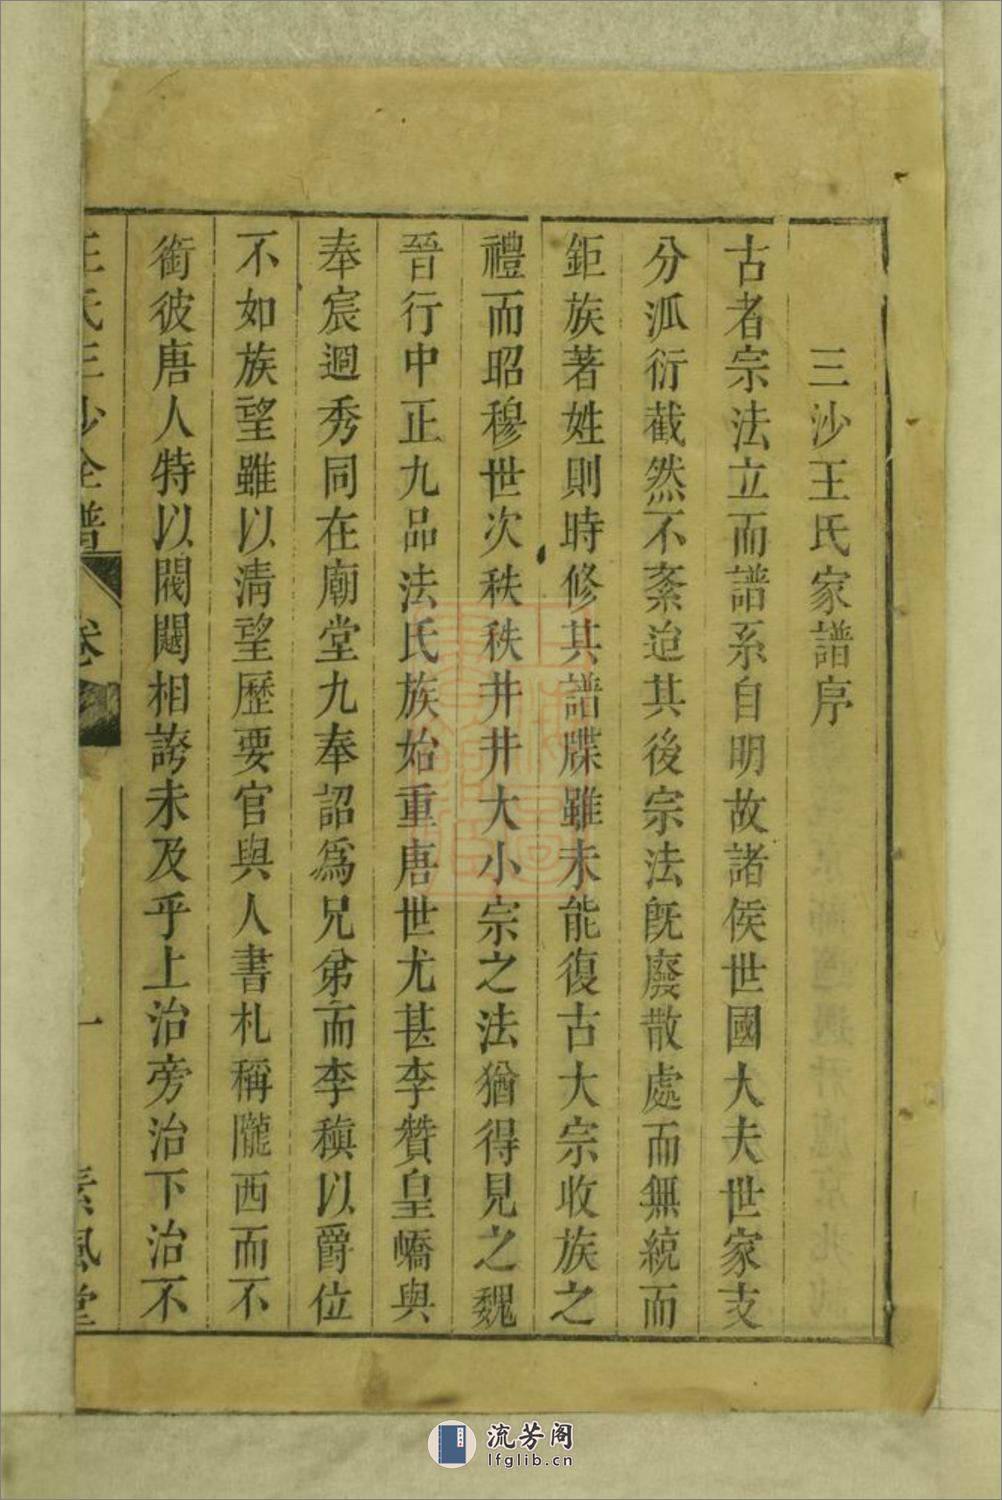 三沙王氏家譜序
古者宗法立而譜系自明故諸侯世國大夫世家支
分派衍截然不紊迨其後宗法旣廢散處而無統而
鉅族著姓則時修其譜牒雖未能復古大宗收族之
禮而昭穆世次秩秩井井大小宗之法猶得見之魏
晉行中正九品法氏族始重唐世尤甚李贊皇嶠與
奉宸迥秀同在廟堂九奉詔爲兄弟而李稹以爵位
不如族望雖以淸望歷要官與人書札稱隴西而不
銜彼唐人特以閥閱相誇未及乎上治旁治下治不
王氏三沙全譜
卷
一
素風堂
流芳阁
lfglib.cn